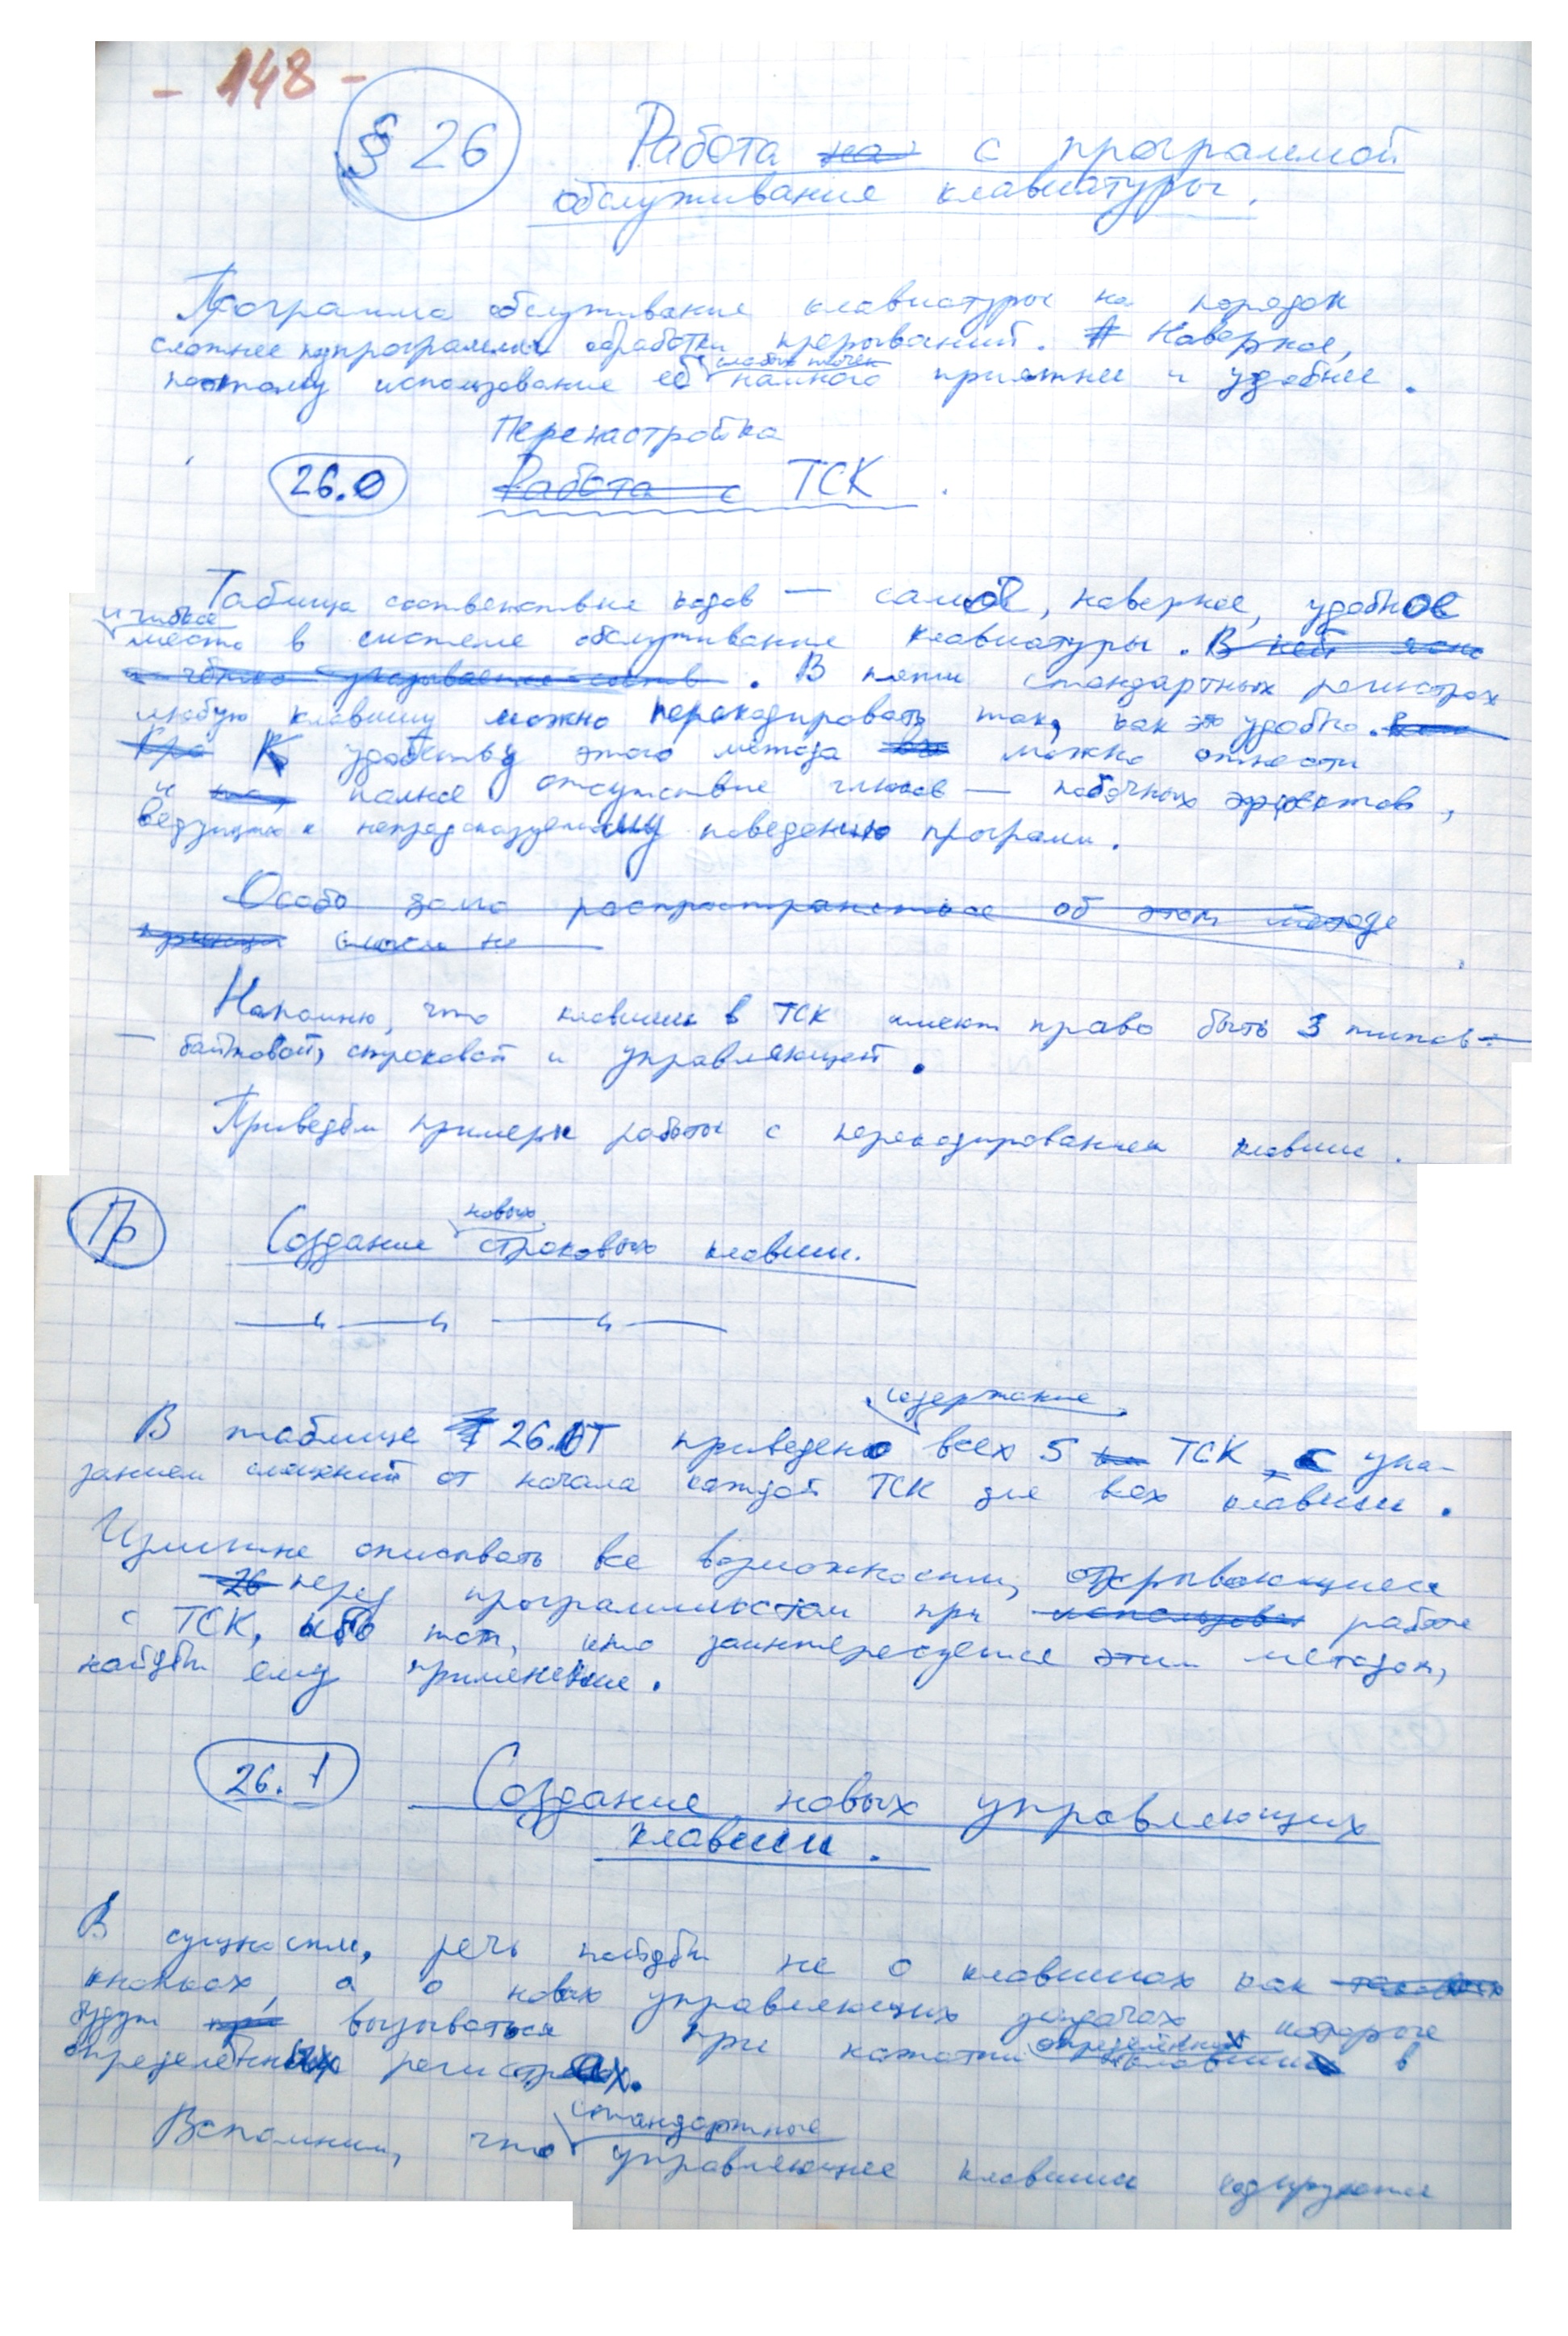 - 148 -
§ 26 Работа на с программой
обслуживания клавиатуры.
Программа обслуживания клавиатуры на порядок
сложнее программы обработки прерываний. Наверное,
поэтому использование её намного приятнее и удобнее.
Перенастройка
26.0 Работа с ТСК.
Таблица соответствия кодов — самое, наверное, удобное
и гибкое
место в системе обслуживания клавиатуры. В ней ясно
и чётко указывается. В пяти стандартных регистрах
любую клавишу можно перекодировать так, как это удобно.
К удобству этого метода можно отнести
и полное отсутствие глюков — побочных эффектов,
ведущих к непредсказуемому поведению программ.
Особо долго распространяться об этом методе
смысла не
Напомню, что клавиши в ТСК имеют право быть 3 типов:
— байтовой, строковой и управляющей.
Приведём примеры работы с перекодированием клавиш.
Пр Создание новых строковых клавиш.
—"— —"— —"—
содержание
В таблице 26.0Т приведено всех 5 ТСК, с ука-
занием смещений от начала каждой ТСК для всех клавиш.
Излишне описывать все возможности, открывающиеся
26 перед программистом при использован работе
с ТСК, ибо тот, кто заинтересуется этим методом,
найдёт ему применение.
26.1 Создание новых управляющих
клавиш.
В сущности, речь пойдёт не о клавишах как таковых
кнопках, а о новых управляющих задачах, которые
будут при вызываться при нажатии определённых клавиш в
определённых регистрах.
стандартные
Вспомним, что управляющие клавиши кодируются